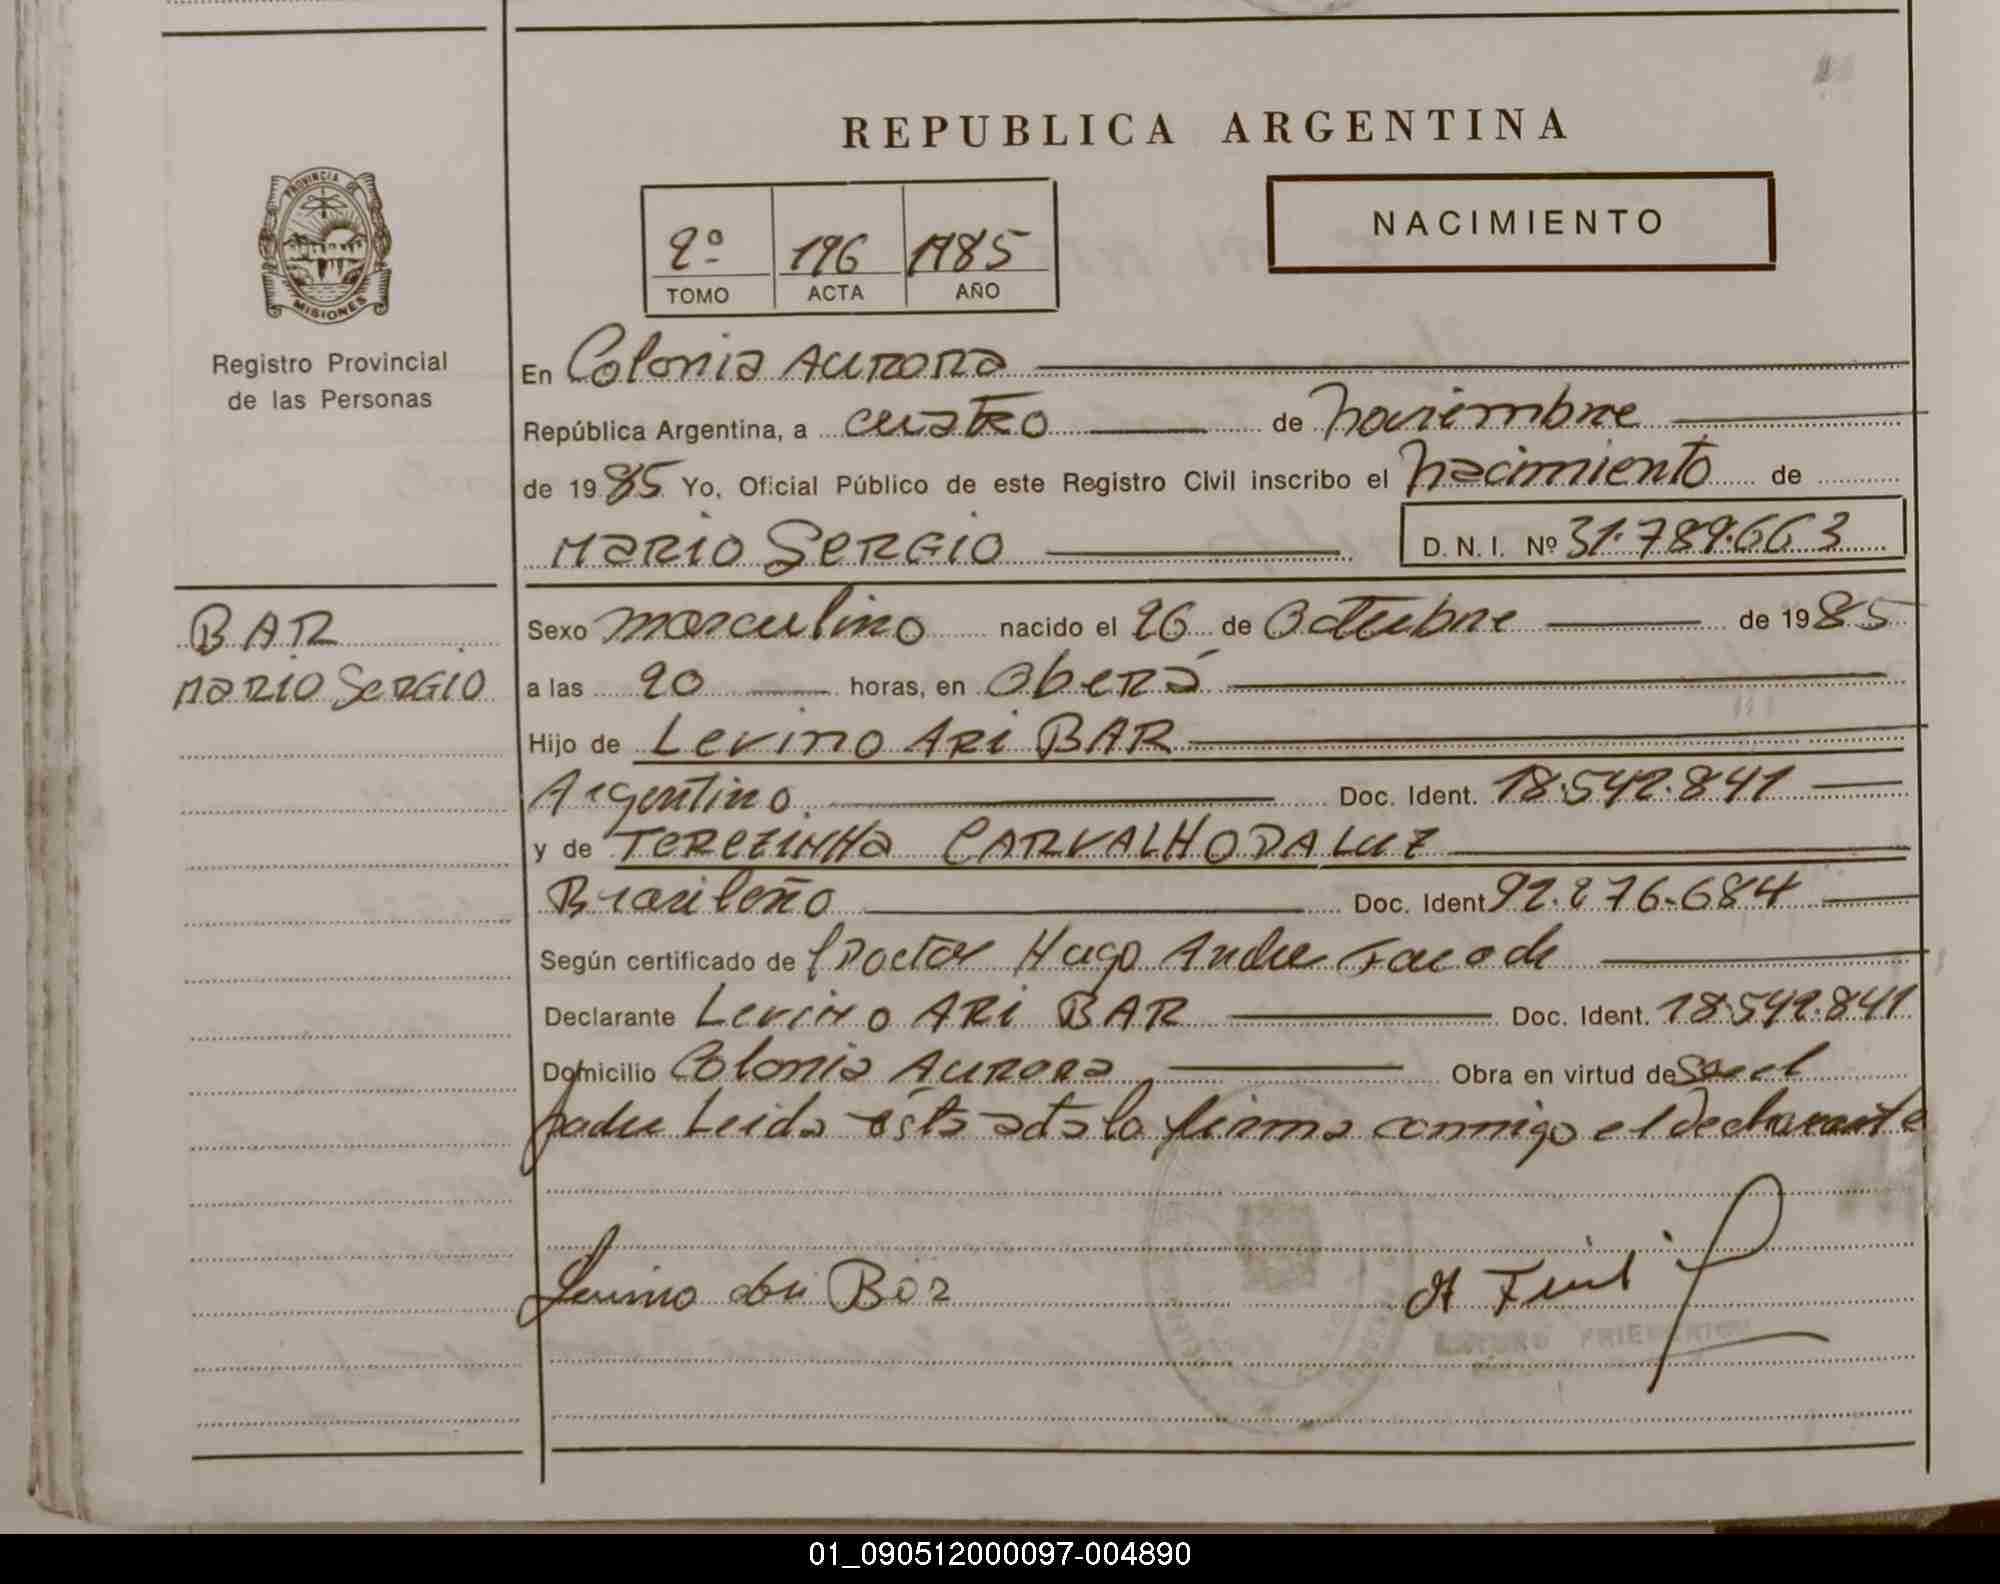 REPUBLICA ARGENTINA
NACIMIENTO
2º 196 1985
TOMO ACTA AÑO
PROVINCIA DE MISIONES
Registro Provincial
de las Personas
En Colonia Aurora
República Argentina, a cuatro de noviembre
de 1985 Yo, Oficial Público de este Registro Civil inscribo el nacimiento de
Mario Sergio D. N. I. Nº 31.789.663
BAR
Mario Sergio
Sexo masculino nacido el 26 de Octubre de 1985
a las 20 horas, en Oberá
Hijo de Levino Ari BAR
Argentino Doc. Ident. 18.542.841
y de Terezinha CARVALHO DA LUZ
Brasileño Doc. Ident 92.276.684
Según certificado de Doctor Hugo Andre
Declarante Levino ARI BAR Doc. Ident. 18.542.841
Domicilio Colonia Aurora Obra en virtud de
padre Leida ésta acta la firma conmigo el Declarante
01_090512000097-004890